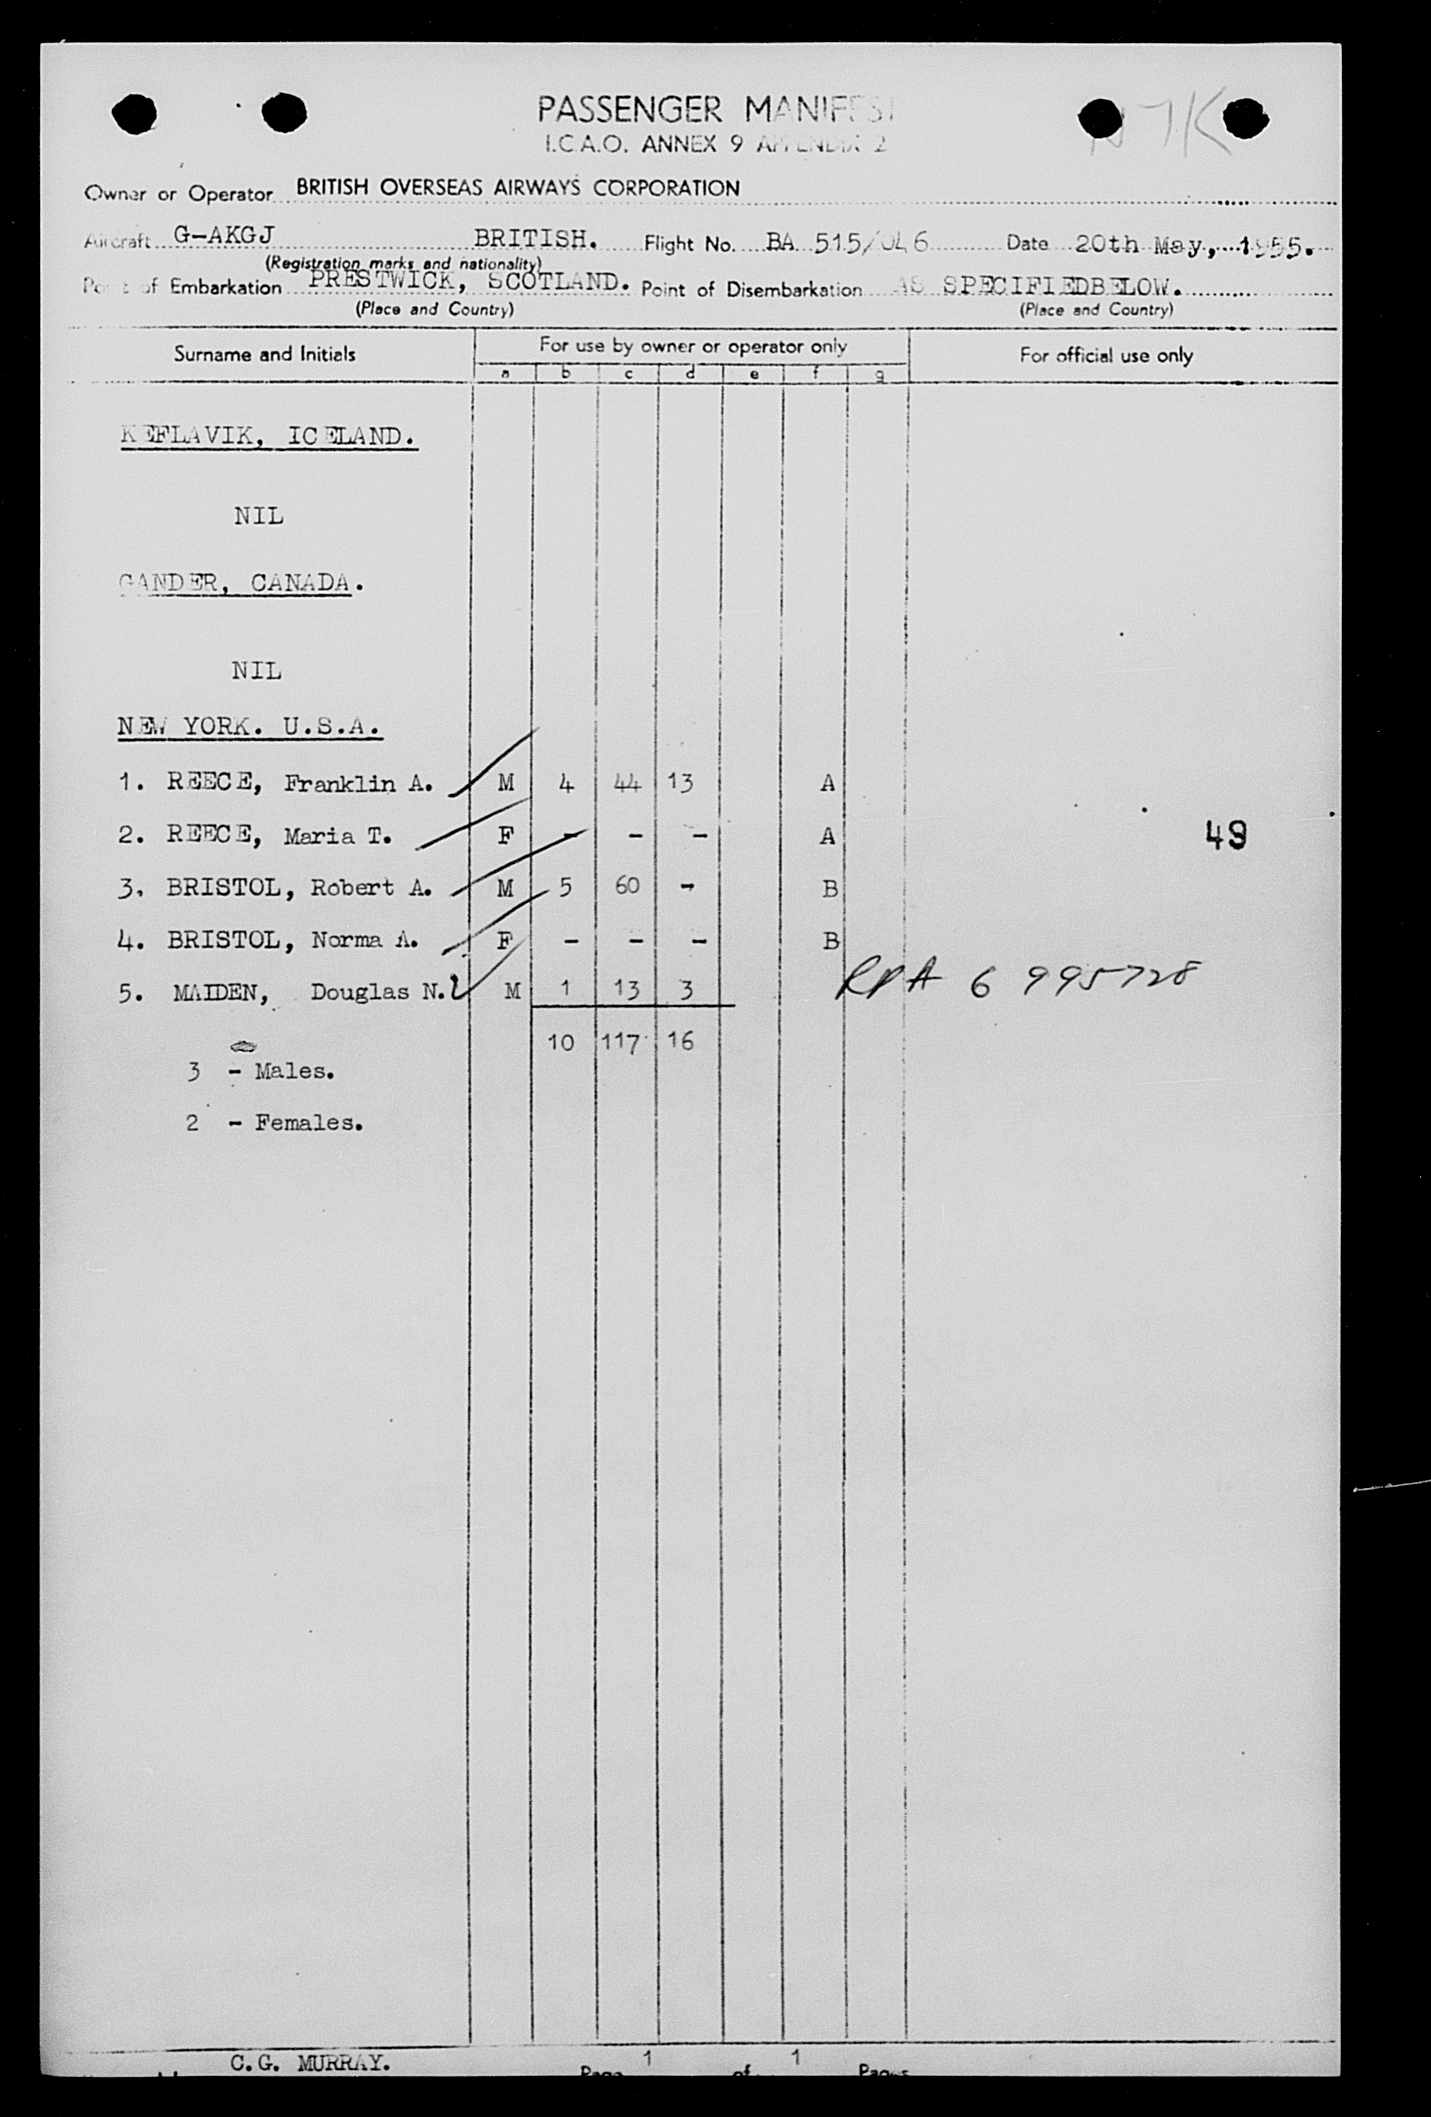 PASSENGER MANIFEST
I.C.A.O. ANNEX 9 APPENDIX 2
Owner or Operator BRITISH OVERSEAS AIRWAYS CORPORATION
Aircraft G-AKGJ BRITISH. Flight No. BA 515/046 Date 20th May, 1955.
(Registration marks and nationality)
Point of Embarkation PRESTWICK, SCOTLAND. Point of Disembarkation AS SPECIFIEDBELOW.
(Place and Country) (Place and Country)
Surname and Initials For use by owner or operator only For official use only
a b c d e f g
KEFLAVIK, ICELAND.
NIL
GANDER, CANADA.
NIL
NEW YORK. U.S.A.
1. REECE, Franklin A. M 4 44 13 A
2. REECE, Maria T. F - - - A 49
3. BRISTOL, Robert A. M 5 60 - B
4. BRISTOL, Norma A. F - - - B
5. MAIDEN, Douglas N. M 1 13 3 6 995728
10 117 16
3 - Males.
2 - Females.
C.G. MURRAY. Page 1 of 1 Pages